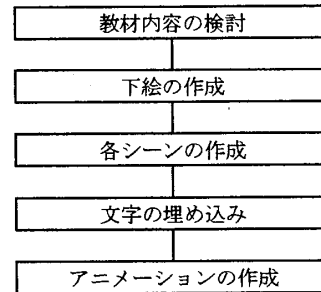 教材内容の検討
下絵の作成
各シーンの作成
文字の埋め込み
アニメーションの作成